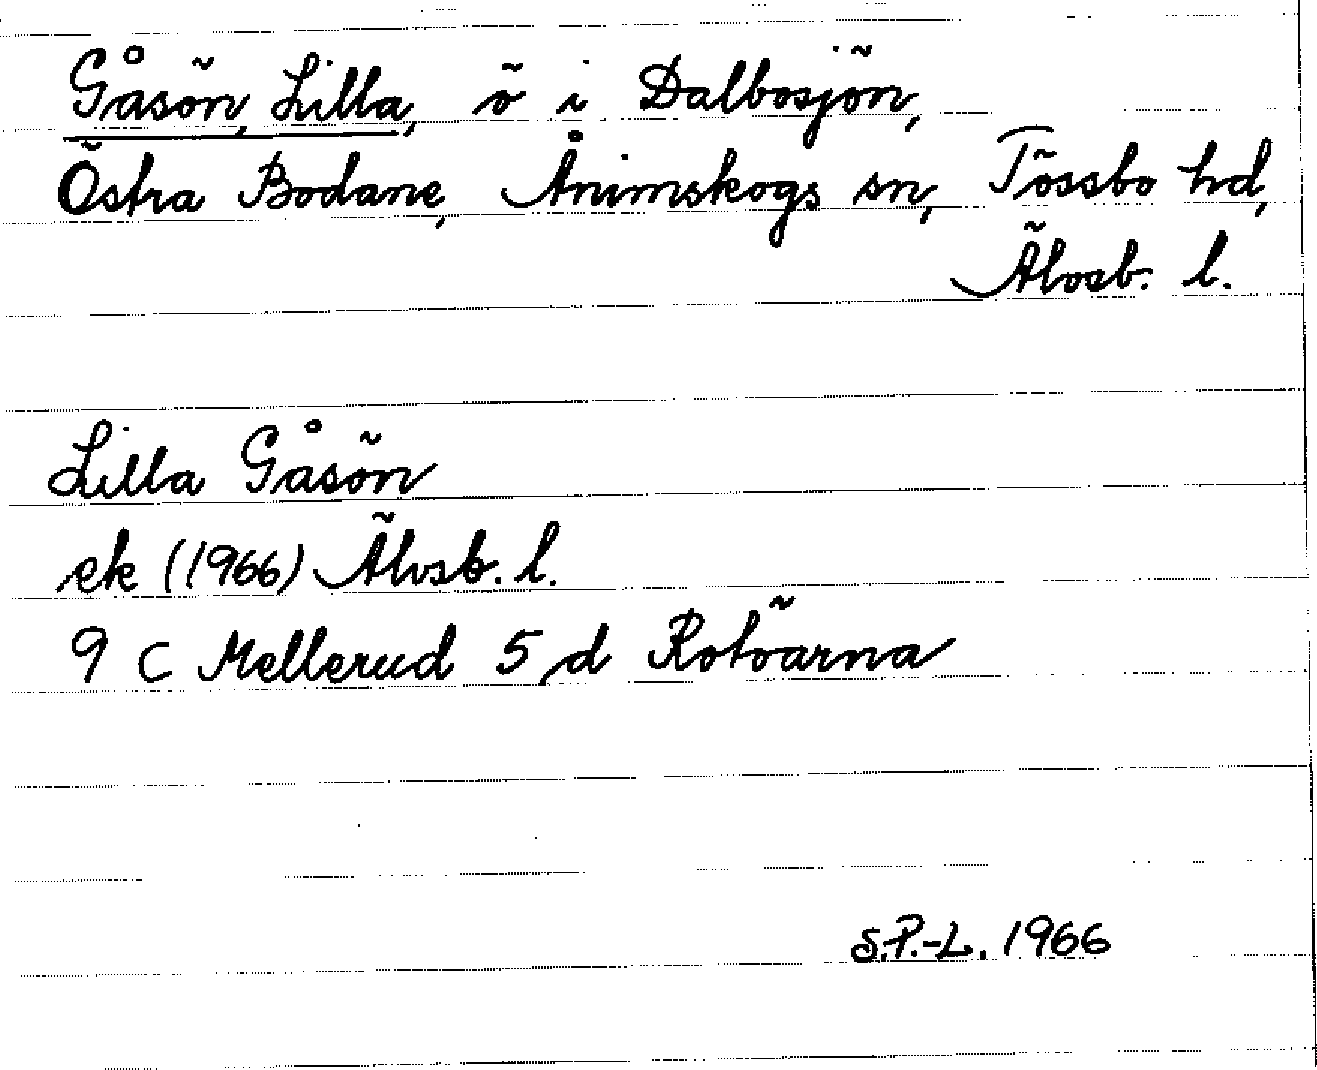 Gåsön, Lilla, ö i Dalbosjön,
Östra Bodane, Ånimskogs sn, Tössbo hd,
Älvsb. l.
Lilla Gåsön
ek (1966) Älvsb. l.
9 C Mellerud 5 d Rotvärna
S.P.-L. 1966